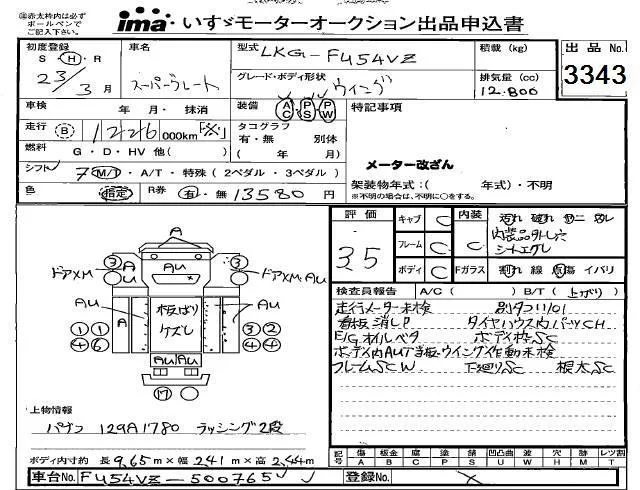 ※赤太枠内は必ず
ボールペンで
ご記入下さい。
ima いすゞモーターオークション出品申込書
初度登録 S・H・R 23/3月
車名 スーパーグレート
型式 LKG-FU54VZ
グレード・ボディ形状 ウイング
積載 (kg)
排気量 (cc) 12.800
出品No. 3343
車検 年・月・抹消
装備 AC PS PW
特記事項
走行 B 1226 000km ※
タコグラフ 有・無 別体 ( 年 月)
燃料 G・D・HV 他( )
メーター改ざん
シフト 7 M/T・A/T・特殊 (2ペダル・3ペダル)
架装物年式:( 年式)・不明
※不明の場合は、不明に○をする。
色 指定 R券 有・無 13580 円
評価 3.5
キャブ C
フレーム C
ボディ C
内装 C 汚れ 破れ 内装品外し穴 シートエグレ
Fガラス 割れ 線 点傷 イバリ
検査員報告 A/C( ) B/T( 上がり)
走行メーター未検 別タコ1101
看板消しP タイヤハウス内パーツCH
E/Gオイルベタ ボディ枠SC
ボディ内AU当板・ウイング作動未検
フレームSCW 下廻りSC 根太SC
A
③ A AU ③
ドアXM ドアXM・AU
AU A 板ばり ケズレ AU
①① ③②
④⑥ ④④
AU AU
⑰
上物情報
パブコ 129A1780 ラッシング2段
ボディ内寸約 長 9.65m×幅 2.41m×高 2.44m
記号 傷A 板金B 腐C 塗P 錆S 凹凸曲U 波W 穴H 跡M レンズ割T
車台No. FU54VZ-500765
登録No.